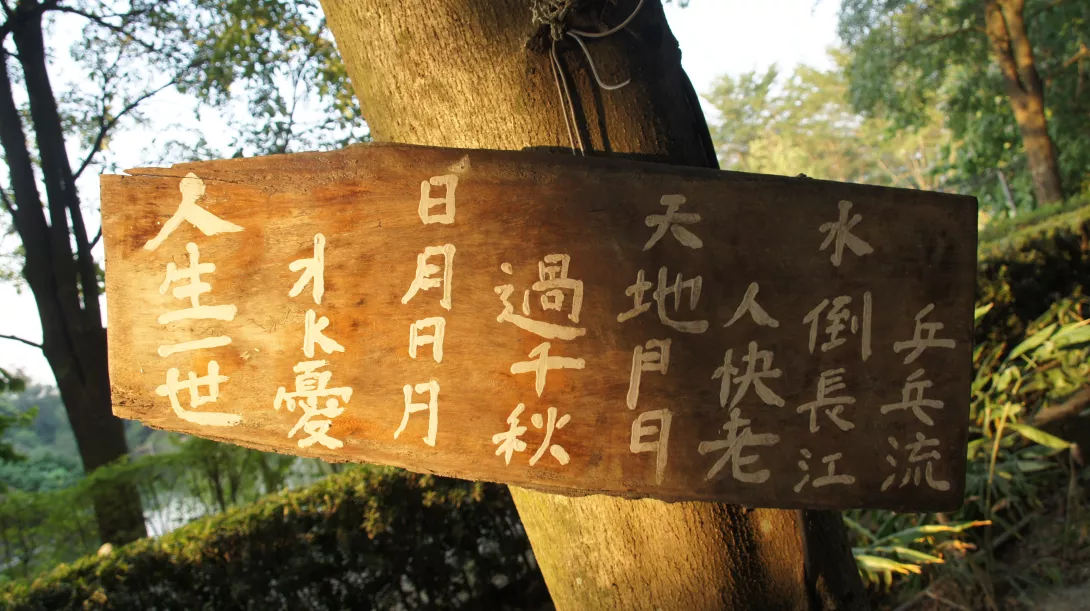 人生一世
才k憂
日月日月
過千秋
天地月日
人快老
水倒長江
乒乓流